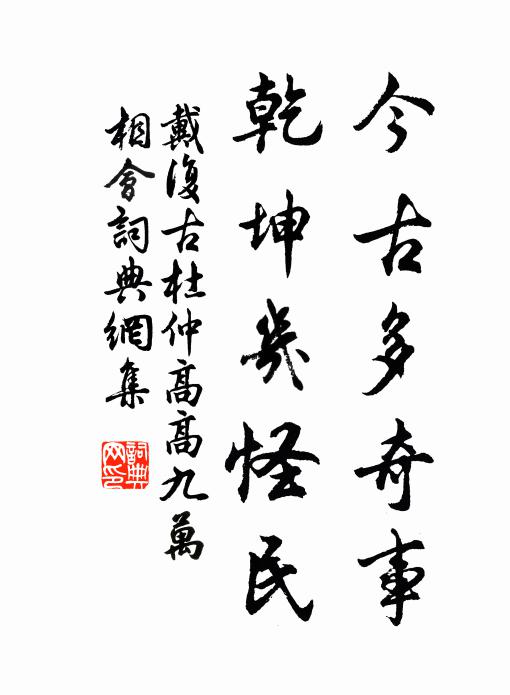 今古多奇事
乾坤幾怪民
戴復古杜仲高高九萬
相會詞典網集
詞典網印